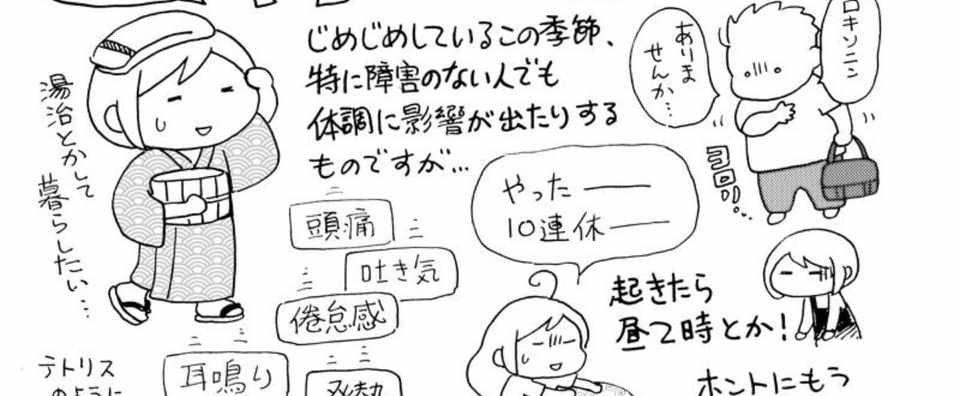 ロキソニン
ありま
せんか…
ヨロ!!…
じめじめしているこの季節、
特に障害のない人でも
体調に影響が出たりする
ものですが…
湯治とかして
暮らしたい…
頭痛
吐き気
倦怠感
耳鳴り
発熱
やった——
10連休——
起きたら
昼で時とか!
テトリス
のように
ホントにもう